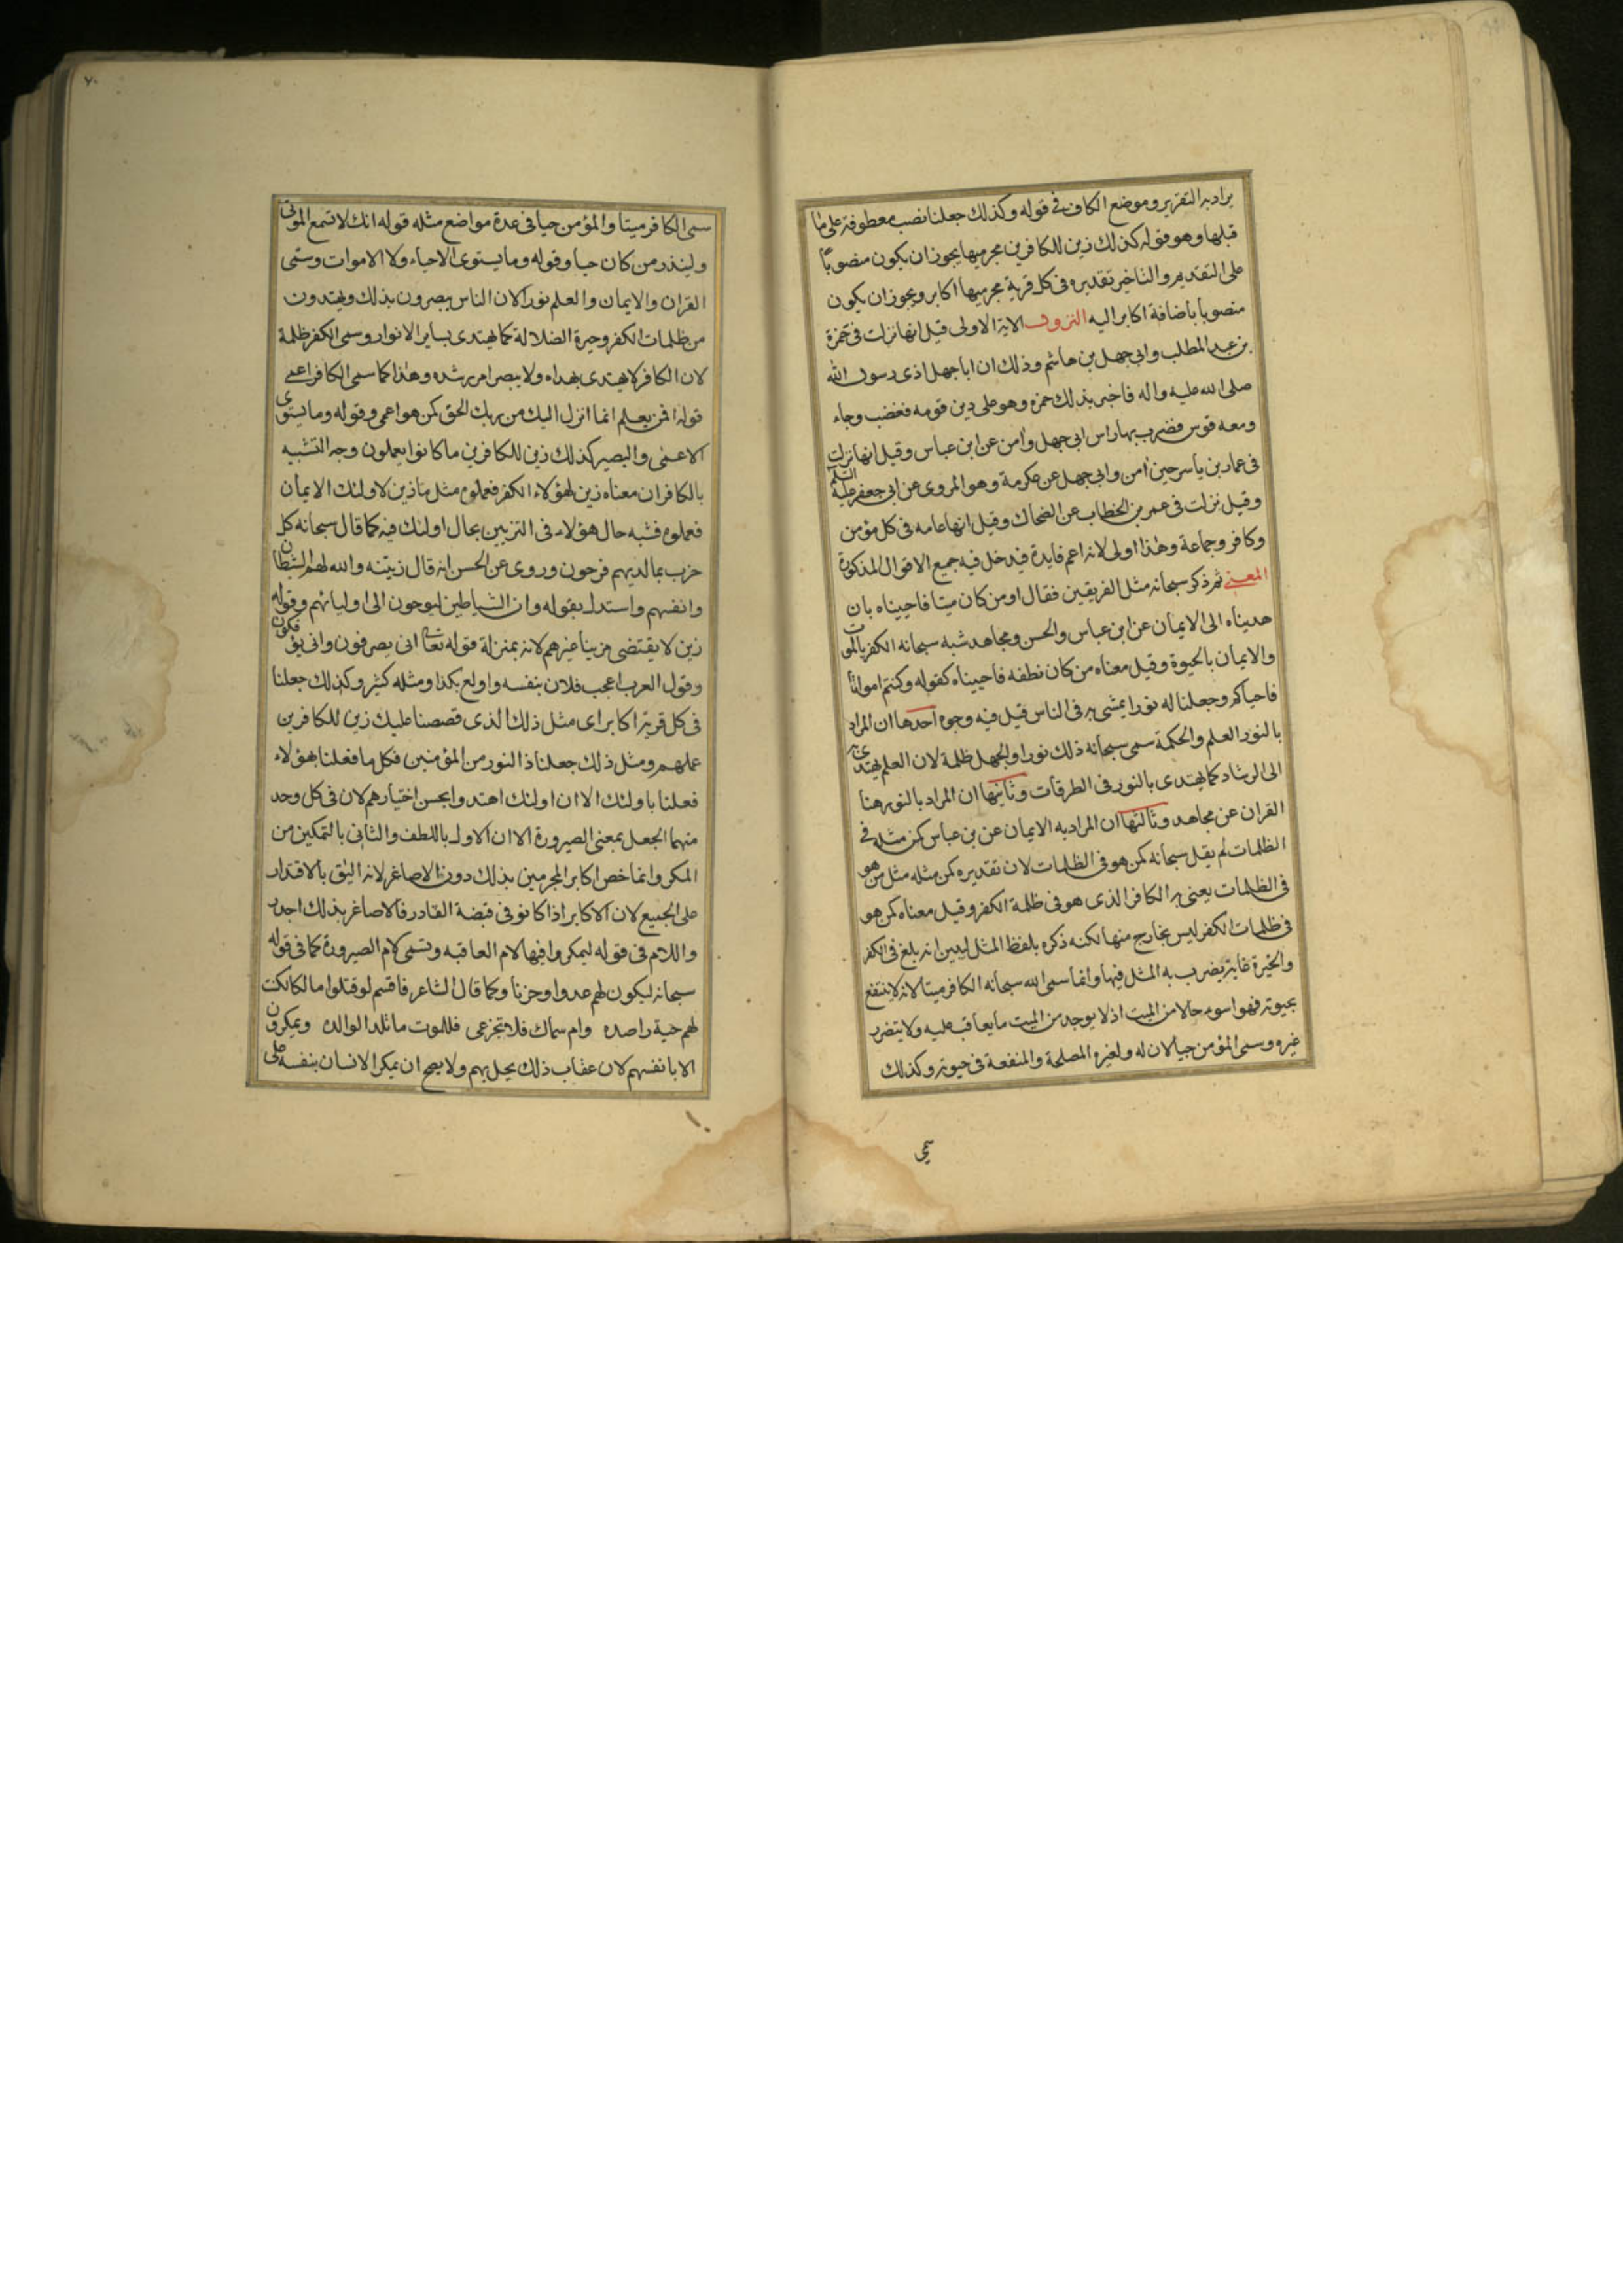 يراد به التقرير وموضع الكاف في قوله وكذلك جعلنا نصب معطوفة على ما
قبلها وهو قوله كذلك زين للكافرين مجرميها يجوز ان يكون منصوباً
على التقديم والتاخير تقديره في كل قرية مجرميها اكابر ويجوز ان يكون
منصوبا باضافة اكابر اليه النزول الاية الاولى قيل انها نزلت في حمزة
بن عبد المطلب وابي جهل بن هاشم وذلك ان ابا جهل اذى رسول الله
صلى الله عليه واله فاخبر بذلك حمزه وهو على دين قومه فغضب وجاء
ومعه قوس فضرب بها راس ابي جهل وامن عن ابن عباس وقيل انها نزلت
في عمار بن ياسر حين امن وابي جهل عن عكرمة وهو المروى عن ابي جعفر عليه السلم
وقيل نزلت في عمر بن الخطاب عن الضحاك وقيل انها عامه في كل مؤمن
وكافر وجماعة وهذا اولى لانه اعم فايدة فيدخل فيه جميع الاقوال المذكورة
المعنى ثم ذكر سبحانه مثل الفريقين فقال اومن كان ميتا فاحييناه بان
هديناه الى الايمان عن ابن عباس والحسن ومجاهد شبه سبحانه الكفر بالموت
والايمان بالحيوة وقيل معناه من كان نطفه فاحييناه كقوله وكنتم امواتاً
فاحياكم وجعلنا له نورا يمشى به في الناس قيل فيه وجوه احدها ان المراد
بالنور العلم والحكمة سمى سبحانه ذلك نورا والجهل ظلمة لان العلم يهتدى به
الى الرشاد كما يهتدى بالنور في الطرقات وثانيها ان المراد بالنور هنا
القران عن مجاهد وثالثها ان المراد به الايمان عن بن عباس كمن مثله في
الظلمات لم يقل سبحانه كمن هو في الظلمات لان تقديره كمن مثله مثل من هو
في الظلمات يعنى به الكافر الذى هو في ظلمة الكفر وقيل معناه كمن هو
في ظلمات الكفر ليس بخارج منها لكنه ذكره بلفظ المثل ليبين انه بلغ في الكفر
والحيرة غاية يضرب به المثل فيها وانما سمى الله سبحانه الكافر ميتا لانه لا ينتفع
بحيوته فهو اسوء حالا من الميت اذ لا يوجد من الميت ما يعاقب عليه ولا يتضرر
غيره وسمى المؤمن حيا لان له ولغيره المصلحة والمنفعة في حيوته وكذلك
سمى
٧٠
سمى الكافر ميتا والمؤمن حيا في عدة مواضع مثله قوله انك لا تسمع الموتى
ولينذر من كان حيا وقوله وما يستوى الاحياء ولا الاموات وسمى
القران والايمان والعلم نورا لان الناس يبصرون بذلك ويهتدون
من ظلمات الكفر وحيرة الضلالة كما يهتدى بساير الانوار وسمى الكفر ظلمة
لان الكافر لا يهتدى بهداه ولا يبصر امر رشده وهذا كما سمى الكافر اعمى
قوله افمن يعلم انما انزل اليك من ربك الحق كمن هو اعمى وقوله وما يستوى
الاعمى والبصير كذلك زين للكافرين ما كانوا يعملون وجه التشبيه
بالكافر ان معناه زين لهؤلاء الكفر فعملوه مثل ما زين لاولئك الايمان
فعملوه فشبه حال هؤلاء في التزيين بحال اولئك فيه كما قال سبحانه كل
حزب بما لديهم فرحون وروى عن الحسن انه قال زينه والله لهم الشيطان
وانفسهم واستدل بقوله وان الشياطين ليوحون الى اوليائهم وقوله
زين لا يقتضى مزينا غيرهم لانه بمنزلة قوله تعالى انى يصرفون وانى يؤفكون
وقول العرب اعجب فلان بنفسه واولع بكذا ومثله كثير وكذلك جعلنا
في كل قرية اكابر اى مثل ذلك الذى قصصنا عليك زين للكافرين
عملهم ومثل ذلك جعلنا ذا النور من المؤمنين فكل ما فعلنا بهؤلاء
فعلنا باولئك الا ان اولئك اهتدوا بحسن اختيارهم لان في كل وحد
منهما الجعل بمعنى الصيرورة الا ان الاول باللطف والثاني بالتمكين من
المكر وانما خص اكابر المجرمين بذلك دون الاصاغر لانه اليق بالاقتدار
على الجميع لان الاكابر اذا كانو في قبضة القادر فالاصاغر بذلك اجدر
واللام في قوله ليمكروا فيها لام العاقبه وتسمى لام الصيرورة كما في قوله
سبحانه ليكون لهم عدوا وحزنا وكما قال الشاعر فاقسم لو قتلوا مالكا لكنت
لهم حية راصده وام سماك فلا تجزعى فللموت ما تلد الوالده ويمكرون
الا بانفسهم لان عقاب ذلك يحل بهم ولا يصح ان يمكر الانسان بنفسه على